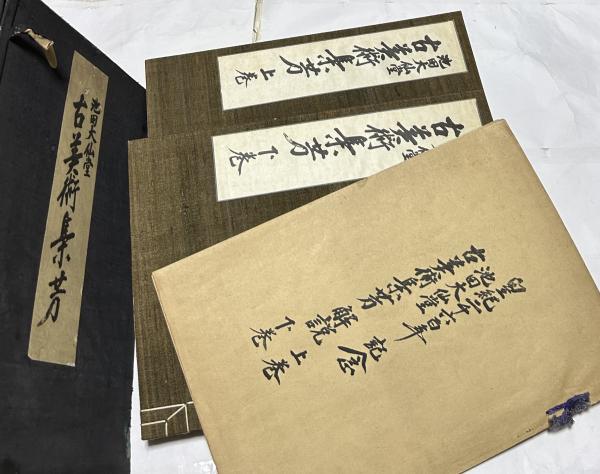 池田大仙堂
古美術集芳
池田大仙堂
古美術集芳 上巻
堂
古美術集芳 下巻
皇紀二千六百年 記念
池田大仙堂
古美術集芳 解説 上巻
下巻